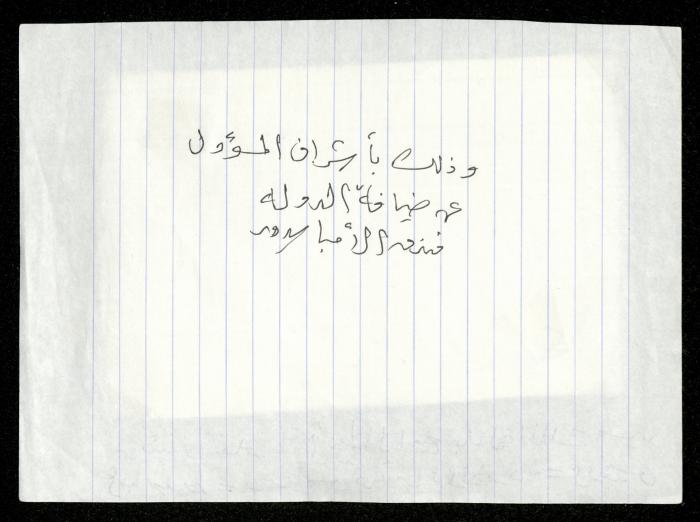 وذلك بأشراف المسؤول
عن ضيافة الدولة
فندق الأمباسدور